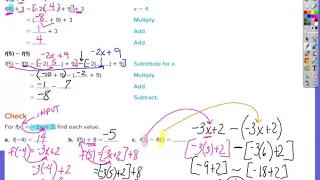 f(4) + 3 = [-2(4) + 9] + 3   x = 4
+ 9) + 3   Multiply.
+ 3   Add.
4   Add.
-2x+9   -2x+9
f(5) - f(1)   Substitute for x.
(-10 + 9) - (-2 + 9)   Multiply.
-1 - 7   Add.
-8   Subtract.
Check
INPUT
For f(x) = -3x + 2, find each value.
a. f(-4) =   b. f(5) + 8 =   -5   c. f(3) - f(6) =   -3x+2 - (-3x+2)
f(-4) = -3x+2   f(5) = [-3x+2]+8   [-3(3)+2] - [-3(6)+2]
-3(-4)+2   =[-3(5)+2]+8   [-9+2] - [-18+2]